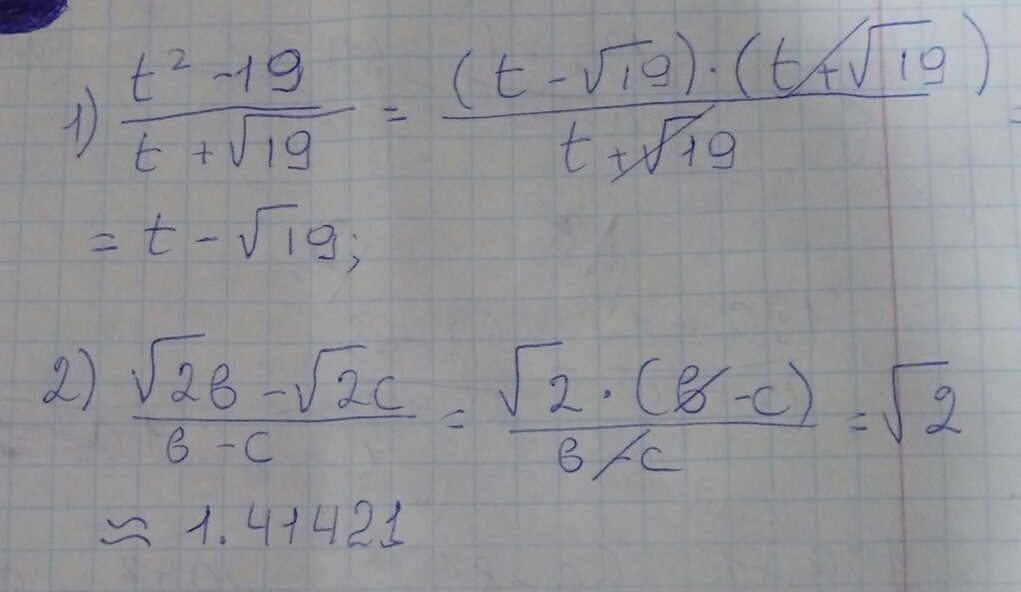 1) (t² - 19)/(t + √19) = ((t - √19) · (t + √19))/(t + √19) =
= t - √19;
2) (√2в - √2c)/(в - c) = (√2 · (в - c))/(в - c) = √2
≈ 1.41421